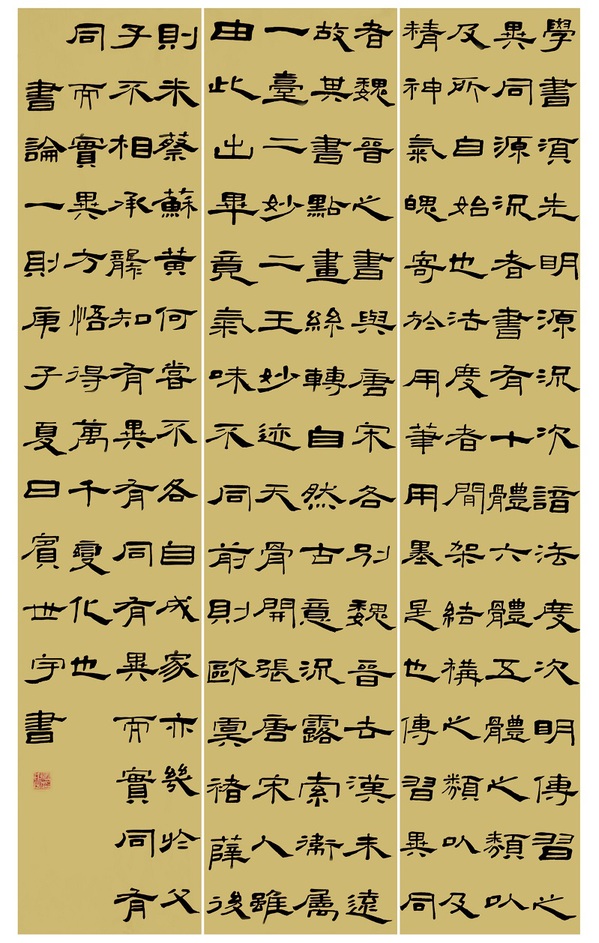 學書須先明源流次諳法度次明傳習之
異同源流者書有十體六體五體之類以
及所自始也法度者間架結構之類以及
精神氣魄寄於用筆用墨是也傳習異同
者魏晉之書與唐宋各別魏晉古漢未遠
故其書點畫絲轉自然古意流露索衛屬
一臺二妙二王妙迹天骨開張唐宋人雖
由此出畢竟氣味不同前則歐虞褚薛後
則米蔡蘇黃何嘗不各自成家亦幾於父
子不相承襲知有異有同有異而實同有
同而實異方悟得萬千變化也
書論一則庚子夏日賓世宇書